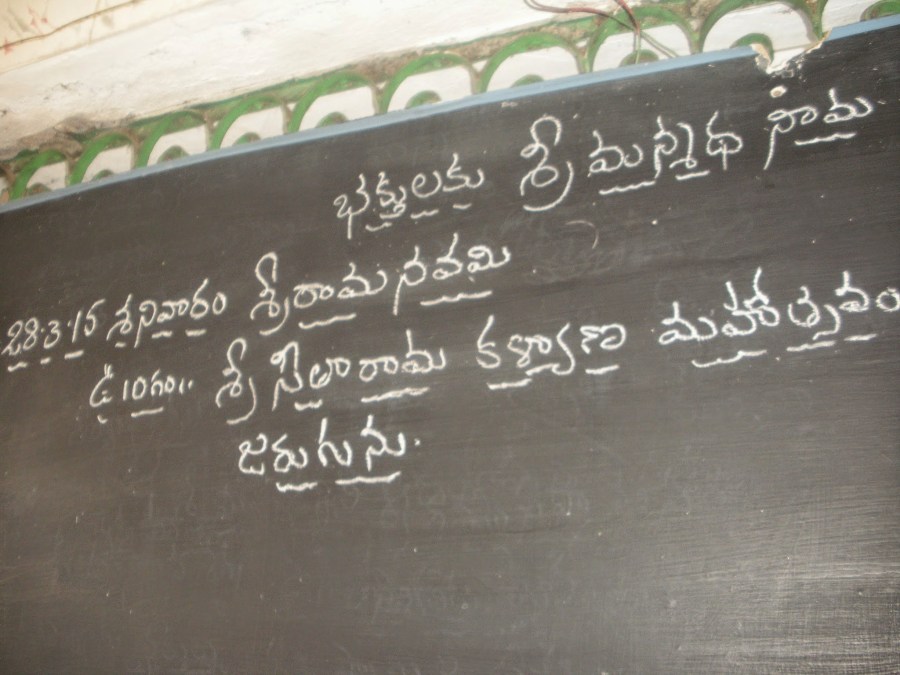 భక్తులకు శ్రీ మన్మథ నామ
28.3.15 శనివారం శ్రీరామ నవమి
ఉ 10గం.. శ్రీ సీతారామ కళ్యాణ మహోత్సవం
జరుగును.